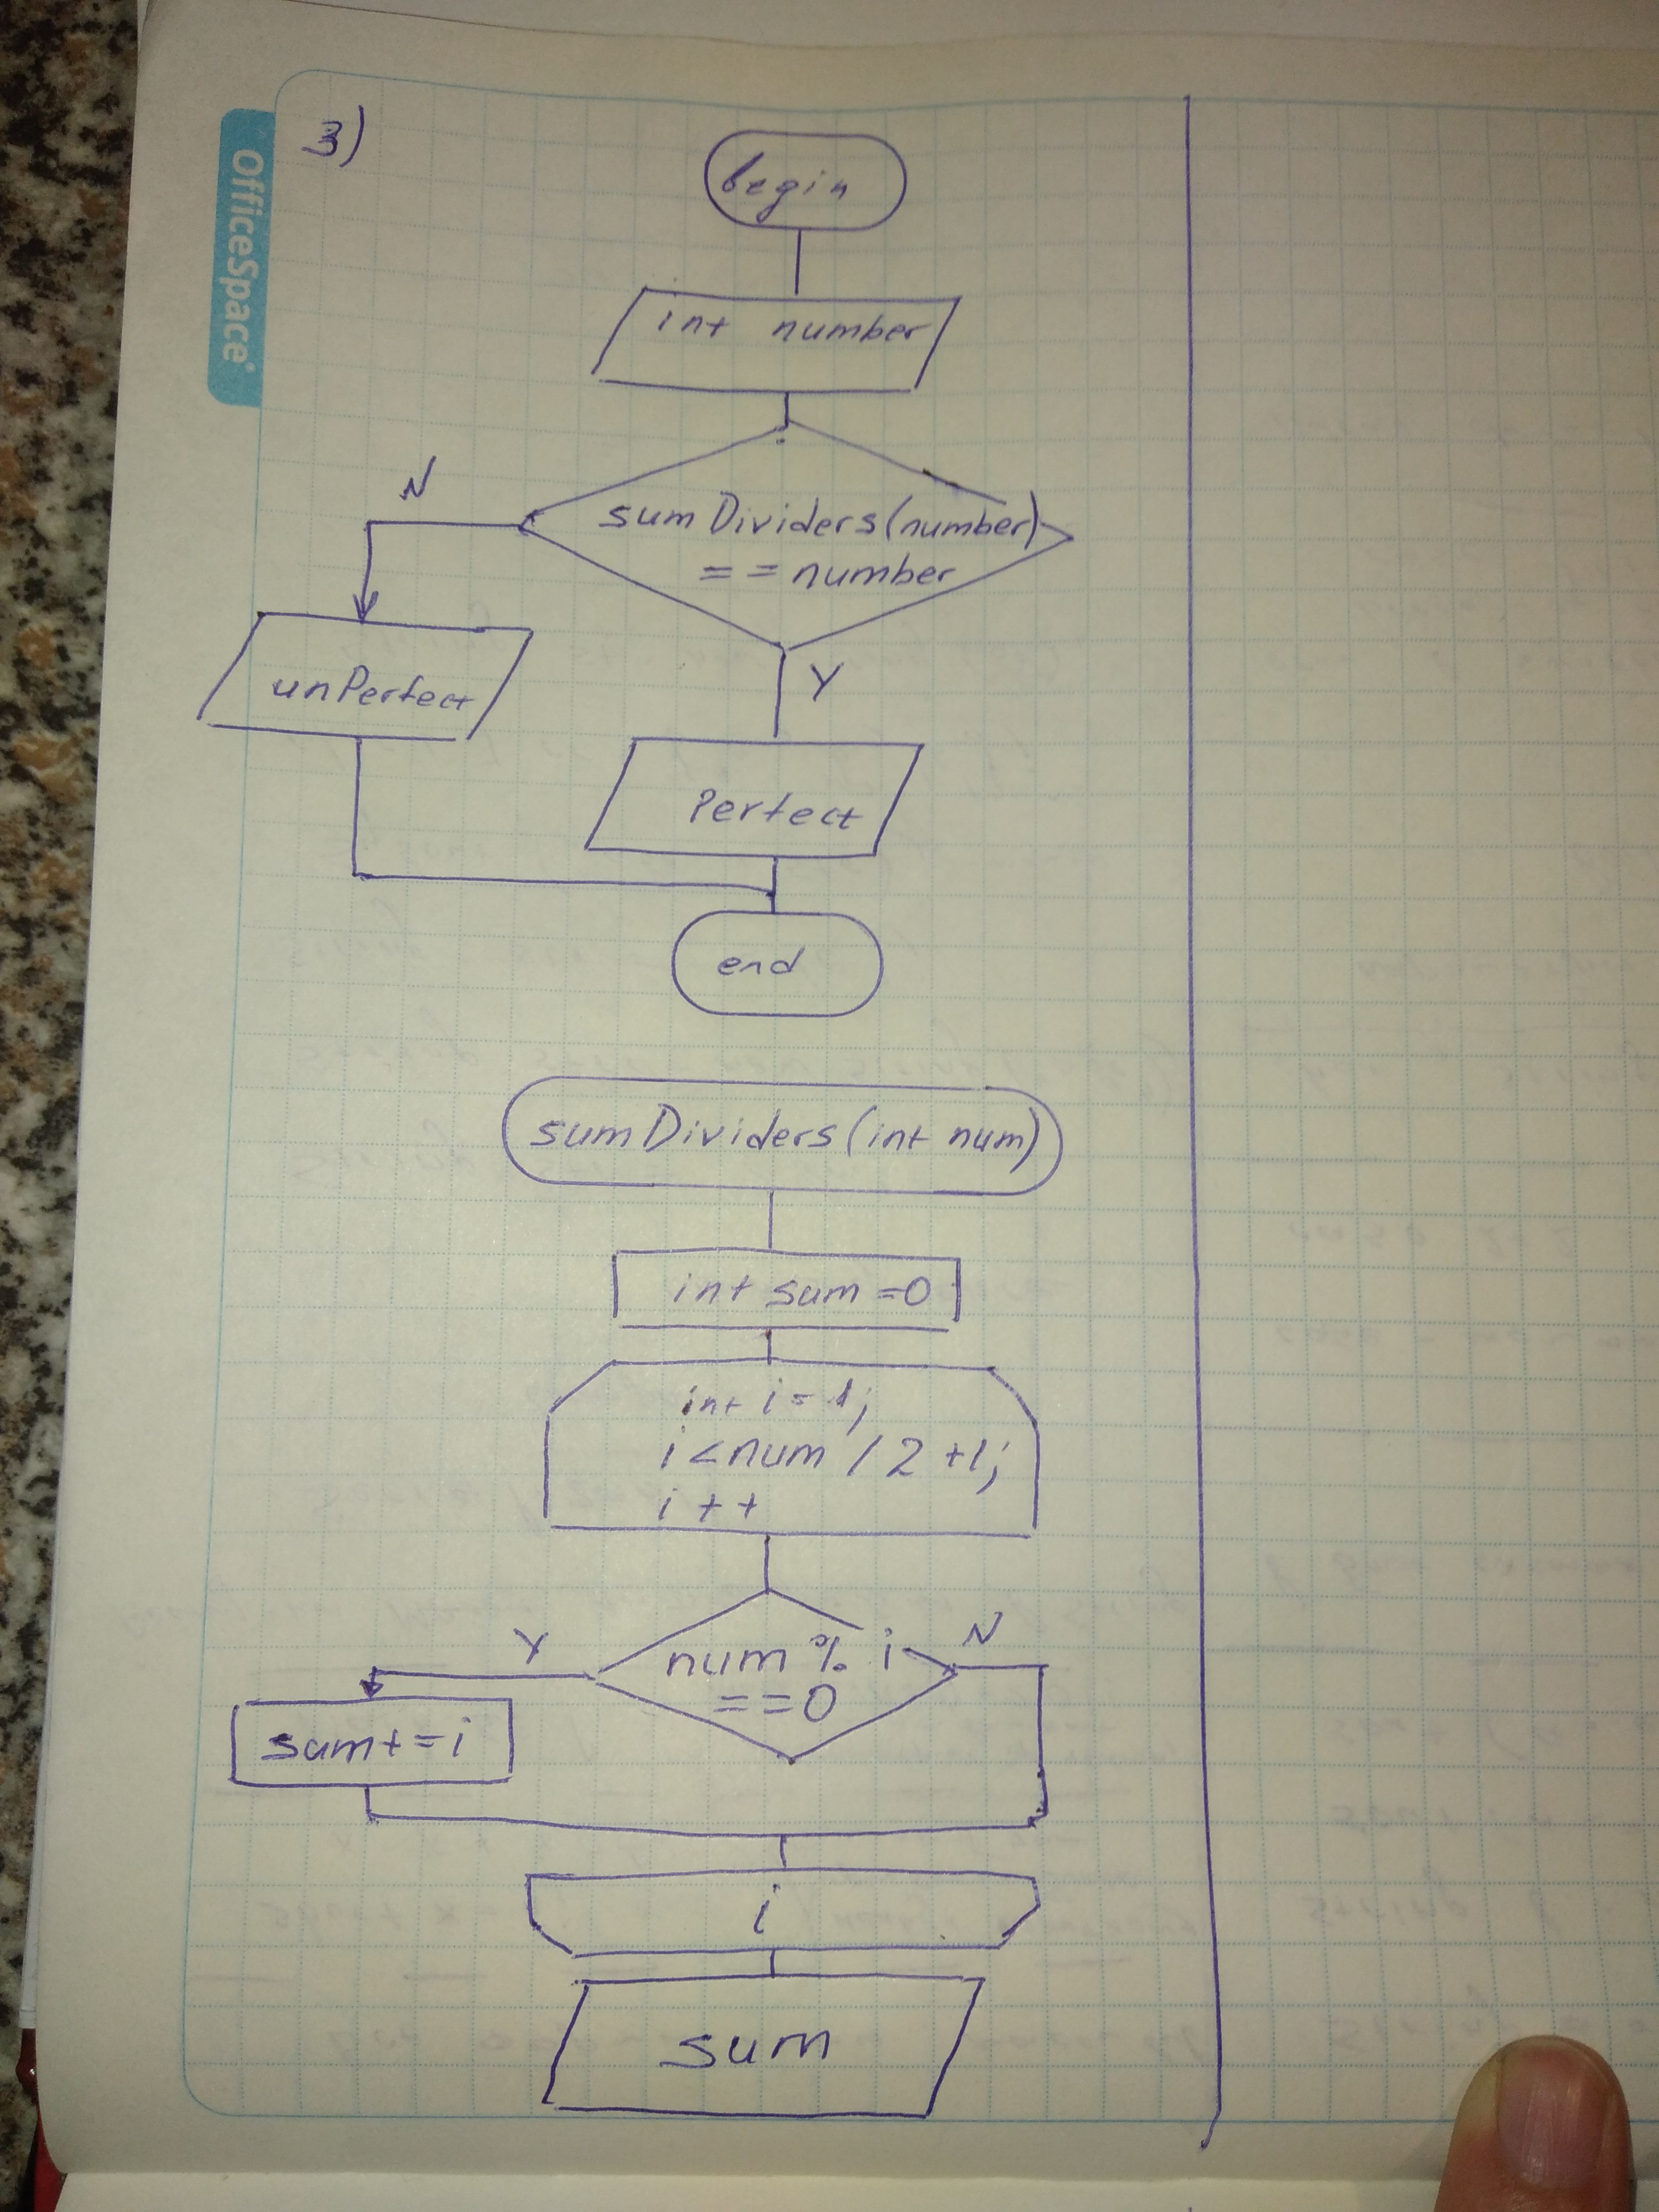 OfficeSpace
3)
begin
int number
N
sumDividers(number)
== number
unPerfect
Y
Perfect
end
sumDividers(int num)
int sum =0
int i = 1;
i < num / 2 +1;
i ++
Y
num % i
N
==0
sum+=i
i
sum